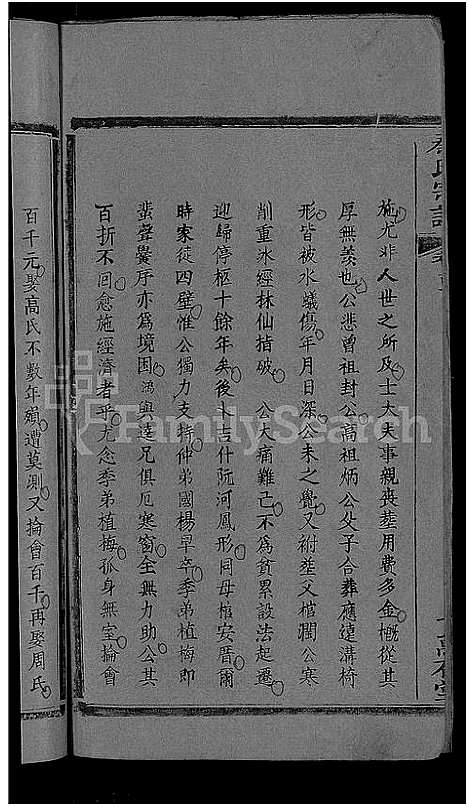 施尤非人世之所及士大夫事親喪葬用費多金概從其
厚無羨也公悲曾祖封公高祖炳公父子合葬應遠溝椅
形皆被水蟻傷年月日深公未之覺又祔葬父棺濶公寒
削重水經林仙指破 公大痛難已不為貧累設法起遷
迎歸停柩十餘年矣後卜吉什阮河鳳形同母棺安厝爾
時家徒四壁惟公獨力支持仲弟國楊早卒季弟植梅即
蜚聲黌序亦為境困鴻與達兄俱厄寒窗全無力助公其
百折不回愈施經濟者乎尤念季弟植梅孤身無室掄會
百千元娶高氏不數年嶺遭莫測又掄會百千再娶周氏
FamilySearch